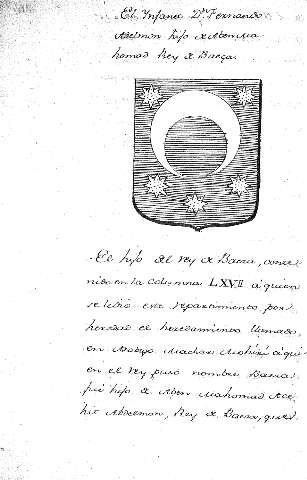 El Infante Dn. Fernando
Abdelmon hijo de Abenma
homad Rey de Baeza.
El hijo del rey de Baeza, conte
nido en la columna LXVII à quien
se le dio este repartimiento por
heredero el heredamiento llamado,
en Machar à qui
en el rey puso nombre Baeza
fué hijo de Aben Mahomad
Abdelmon, Rey de Baeza, que